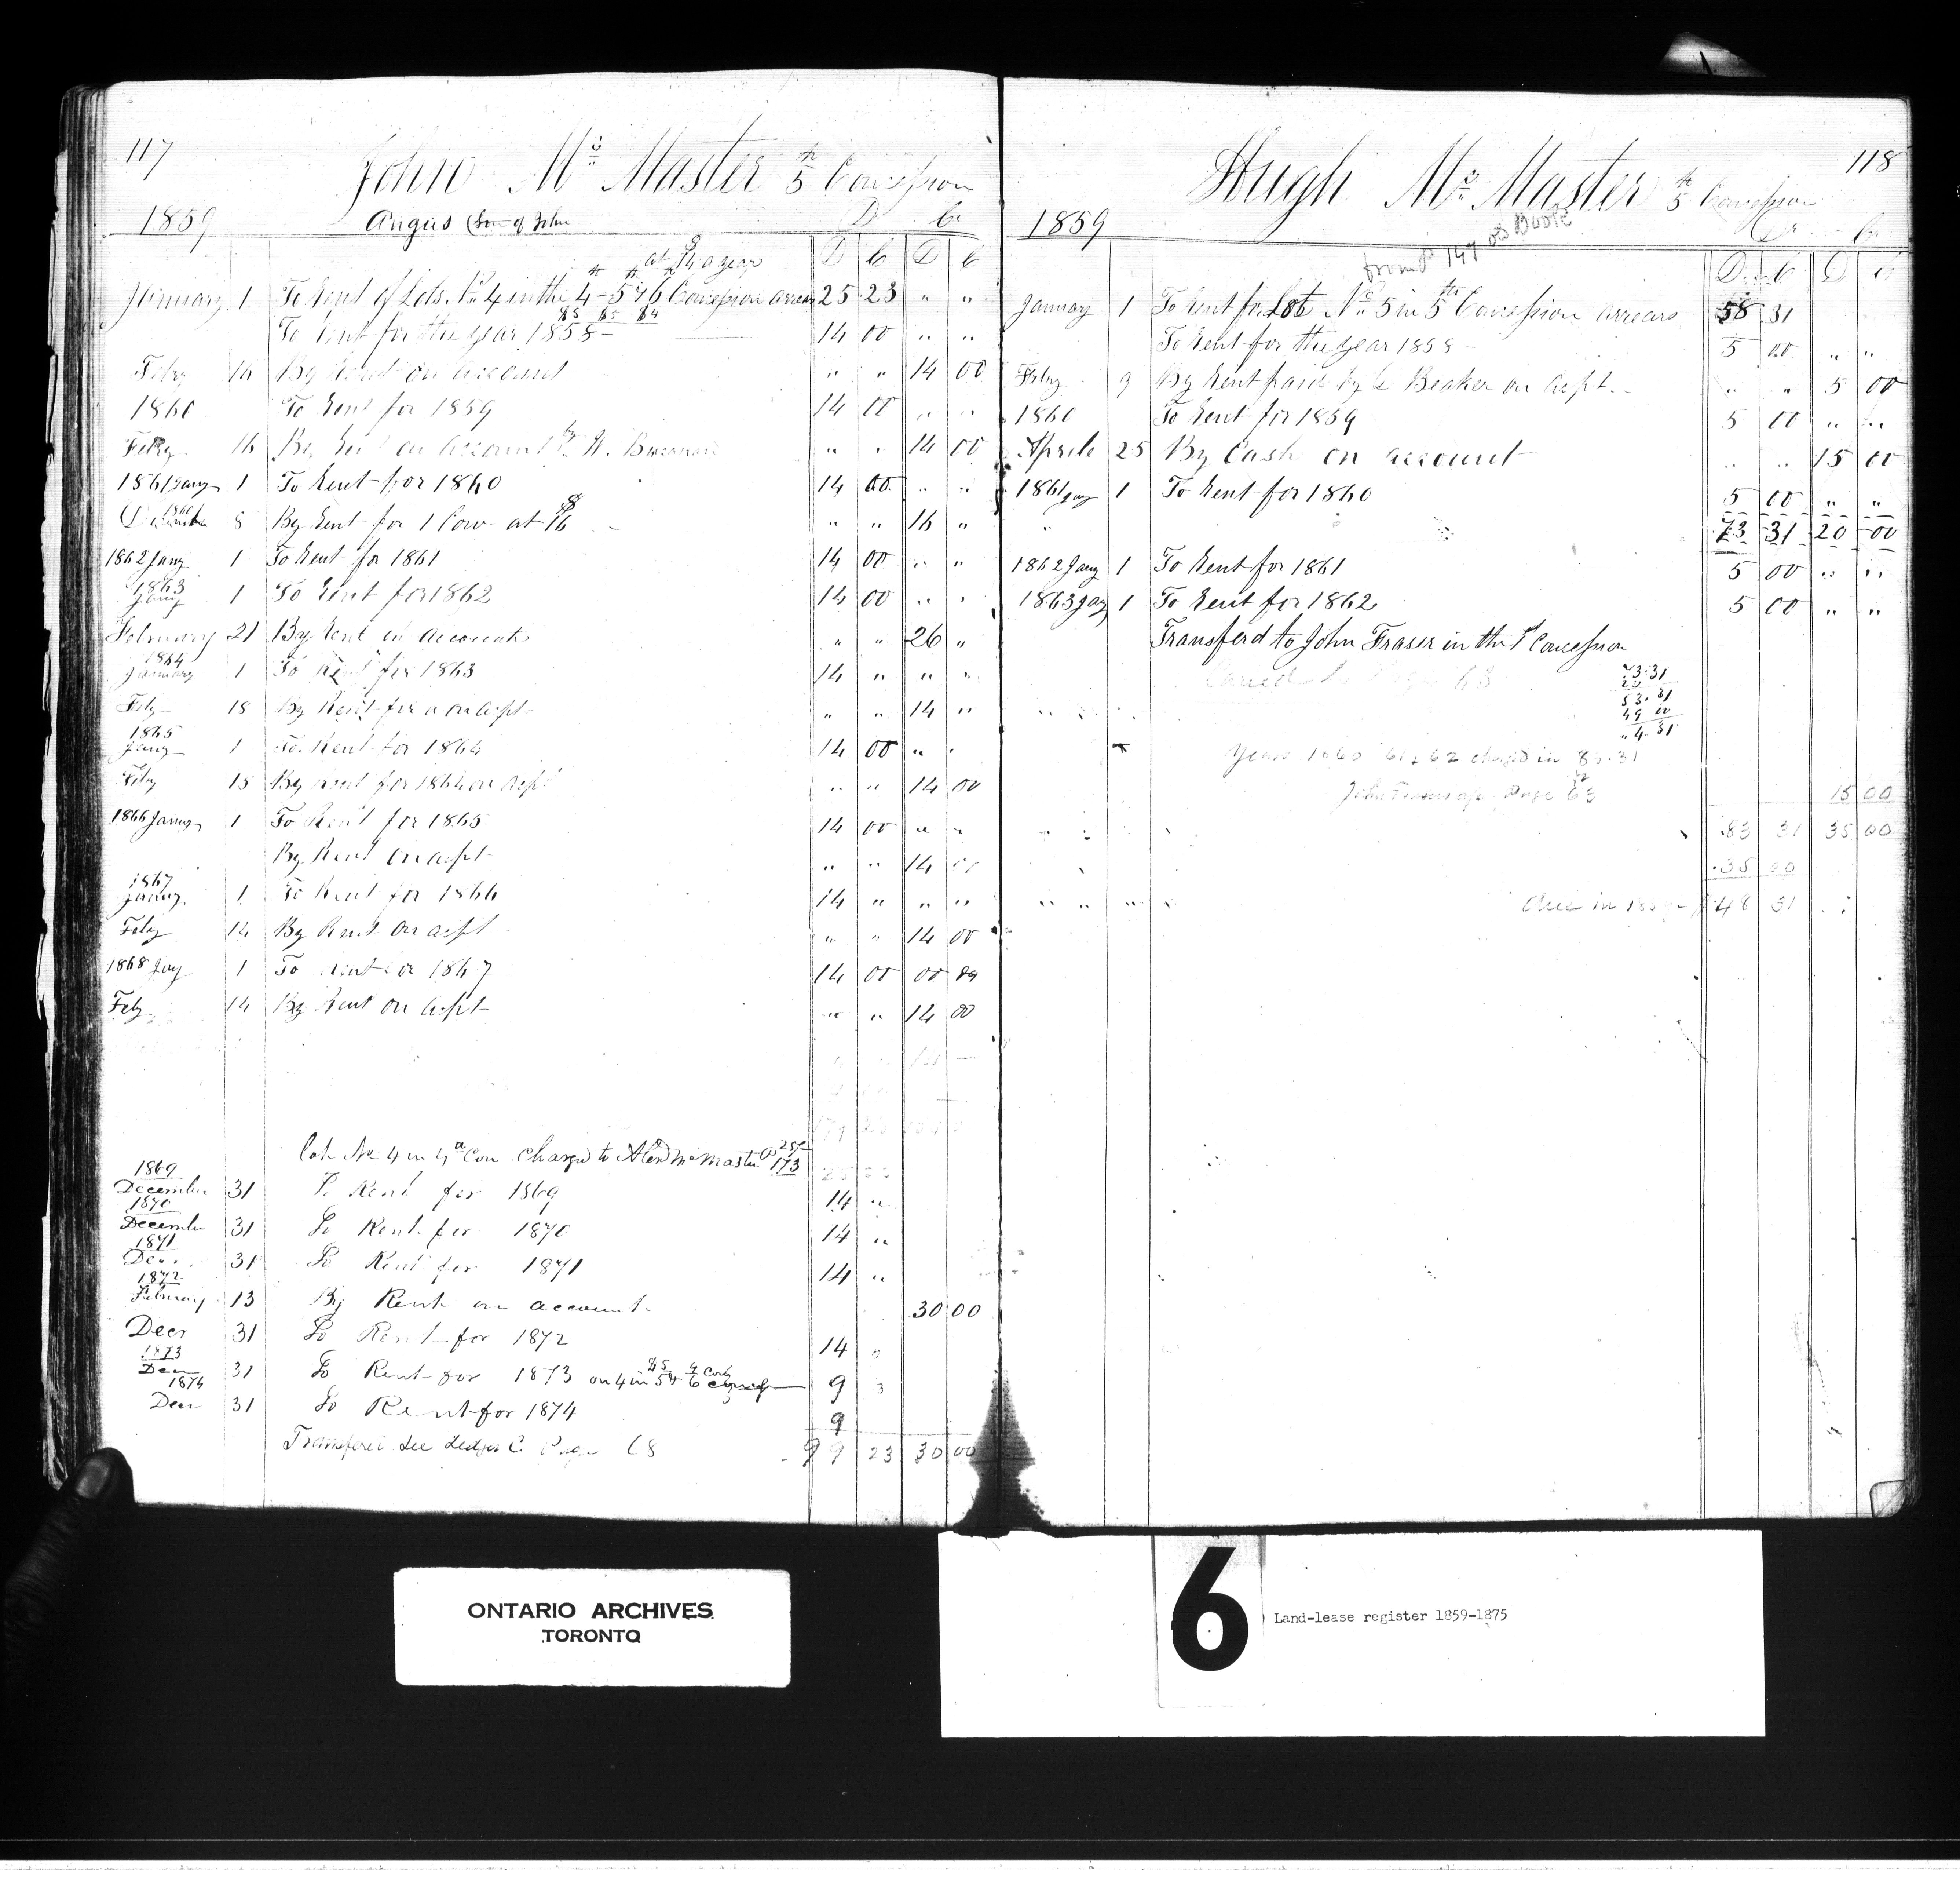 117
John Mc Master 5th Concession
1859 Angus (Son of John D Cr
at $14 a year D C D C
January 1 To Rent of Lots No 4 in the 4th - 5th & 6th Concession arrears 25 23 " "
$5 $5 $4
To Rent for the year 1858 - 14 00 " "
Feby 16 By Rent on account " " 14 00
1860 To Rent for 1859 14 00 " "
Feby 16 By Rent on account by A. " " 14 00
1861 Jany 1 To Rent for 1860 14 00 " "
8 By Rent for 1 Cow at $16 " " 16 "
1862 Jany 1 To Rent for 1861 14 00 " "
1863 Jany 1 To Rent for 1862 14 00 " "
February 21 By Rent on account " " 26 "
1864 January 1 To Rent for 1863 14 " " "
Feby 18 By Rent for on acpt " " 14 "
1865 Jany 1 To Rent for 1864 14 00 " "
Feby 15 By Rent for 1864 on acpt " " 14 00
1866 Jany 1 To Rent for 1865 14 00 " "
By Rent on acpt " " 14 00
1867 January 1 To Rent for 1866 14 " " "
Feby 14 By Rent on acpt " " 14 00
1868 Jay 1 To Rent for 1867 14 00 00 00
Feby 14 By Rent on acpt " " 14 00
Lot No 4 in 4th Con Charged to Alexd McMaster P 173
1869
December 31 To Rent for 1869 14 "
1870
December 31 To Rent for 1870 14 "
1871
Decr 31 To Rent for 1871 14 "
1872
February 13 By Rent on account 30 00
Decr 31 To Rent for 1872 14 "
1873
Decr 31 To Rent for 1873 on 4 in 5 & 6 9
1874
Decr 31 To Rent for 1874 9
Transfered See Ledger C. Page 68 99 23 30 00
118
Hugh Mc Master 5th Concession
1859 from P 147 old Book Dr Cr
D C D C
January 1 To Rent for Lot No 5 in 5th Concession arrears 58 31
To Rent for the year 1858 - 5 00 " "
Feby 9 By Rent paid by Beaker on acpt. " " 5 00
1860 To Rent for 1859 5 00 " "
Aprile 25 By Cash on account " " 15 00
1861 Jay 1 To Rent for 1860 5 00 " "
73 31 20 00
1862 Jany 1 To Rent for 1861 5 00 " "
1863 Jay 1 To Rent for 1862 5 00 " "
Transferd to John Fraser in the 1st Concession
73.31
20
53.31
49 00
" 4.31
Years 1860 61 & 62 chargd in 83.31
John Fraser Page 63 15 00
83 31 35 00
35 00
due in 48 31
ONTARIO ARCHIVES
TORONTO
6
Land-lease register 1859-1875